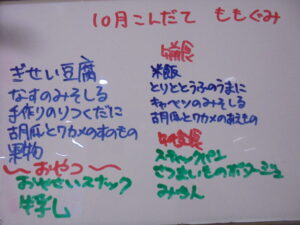 10月こんだて ももぐみ
ぎせい豆腐
なすのみそしる
手作りのりつくだに
胡瓜とワカメのすのもの
果物
〜おやつ〜
おやせいスナック
牛乳
米飯
とりととうふのうまに
キャベツのみそしる
胡瓜とワカメのあえもの
スナックパン
さつまいものポタージュ
みかん